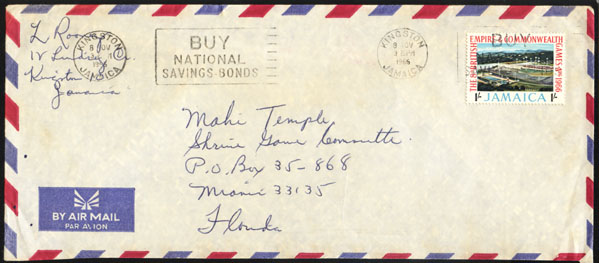 KINGSTON
8 NOV
1966
JAMAICA
BUY
NATIONAL
SAVINGS-BONDS
KINGSTON
8 NOV
1966
JAMAICA
BUY
THE 8TH BRITISH EMPIRE & COMMONWEALTH GAMES 4TH 1966
JAMAICA
1/- 1/-
Kingston
Jamaica
Mahi Temple
Shrine Game Committe
P.O. Box 35-868
Miami 33135
Florida
BY AIR MAIL
PAR AVION